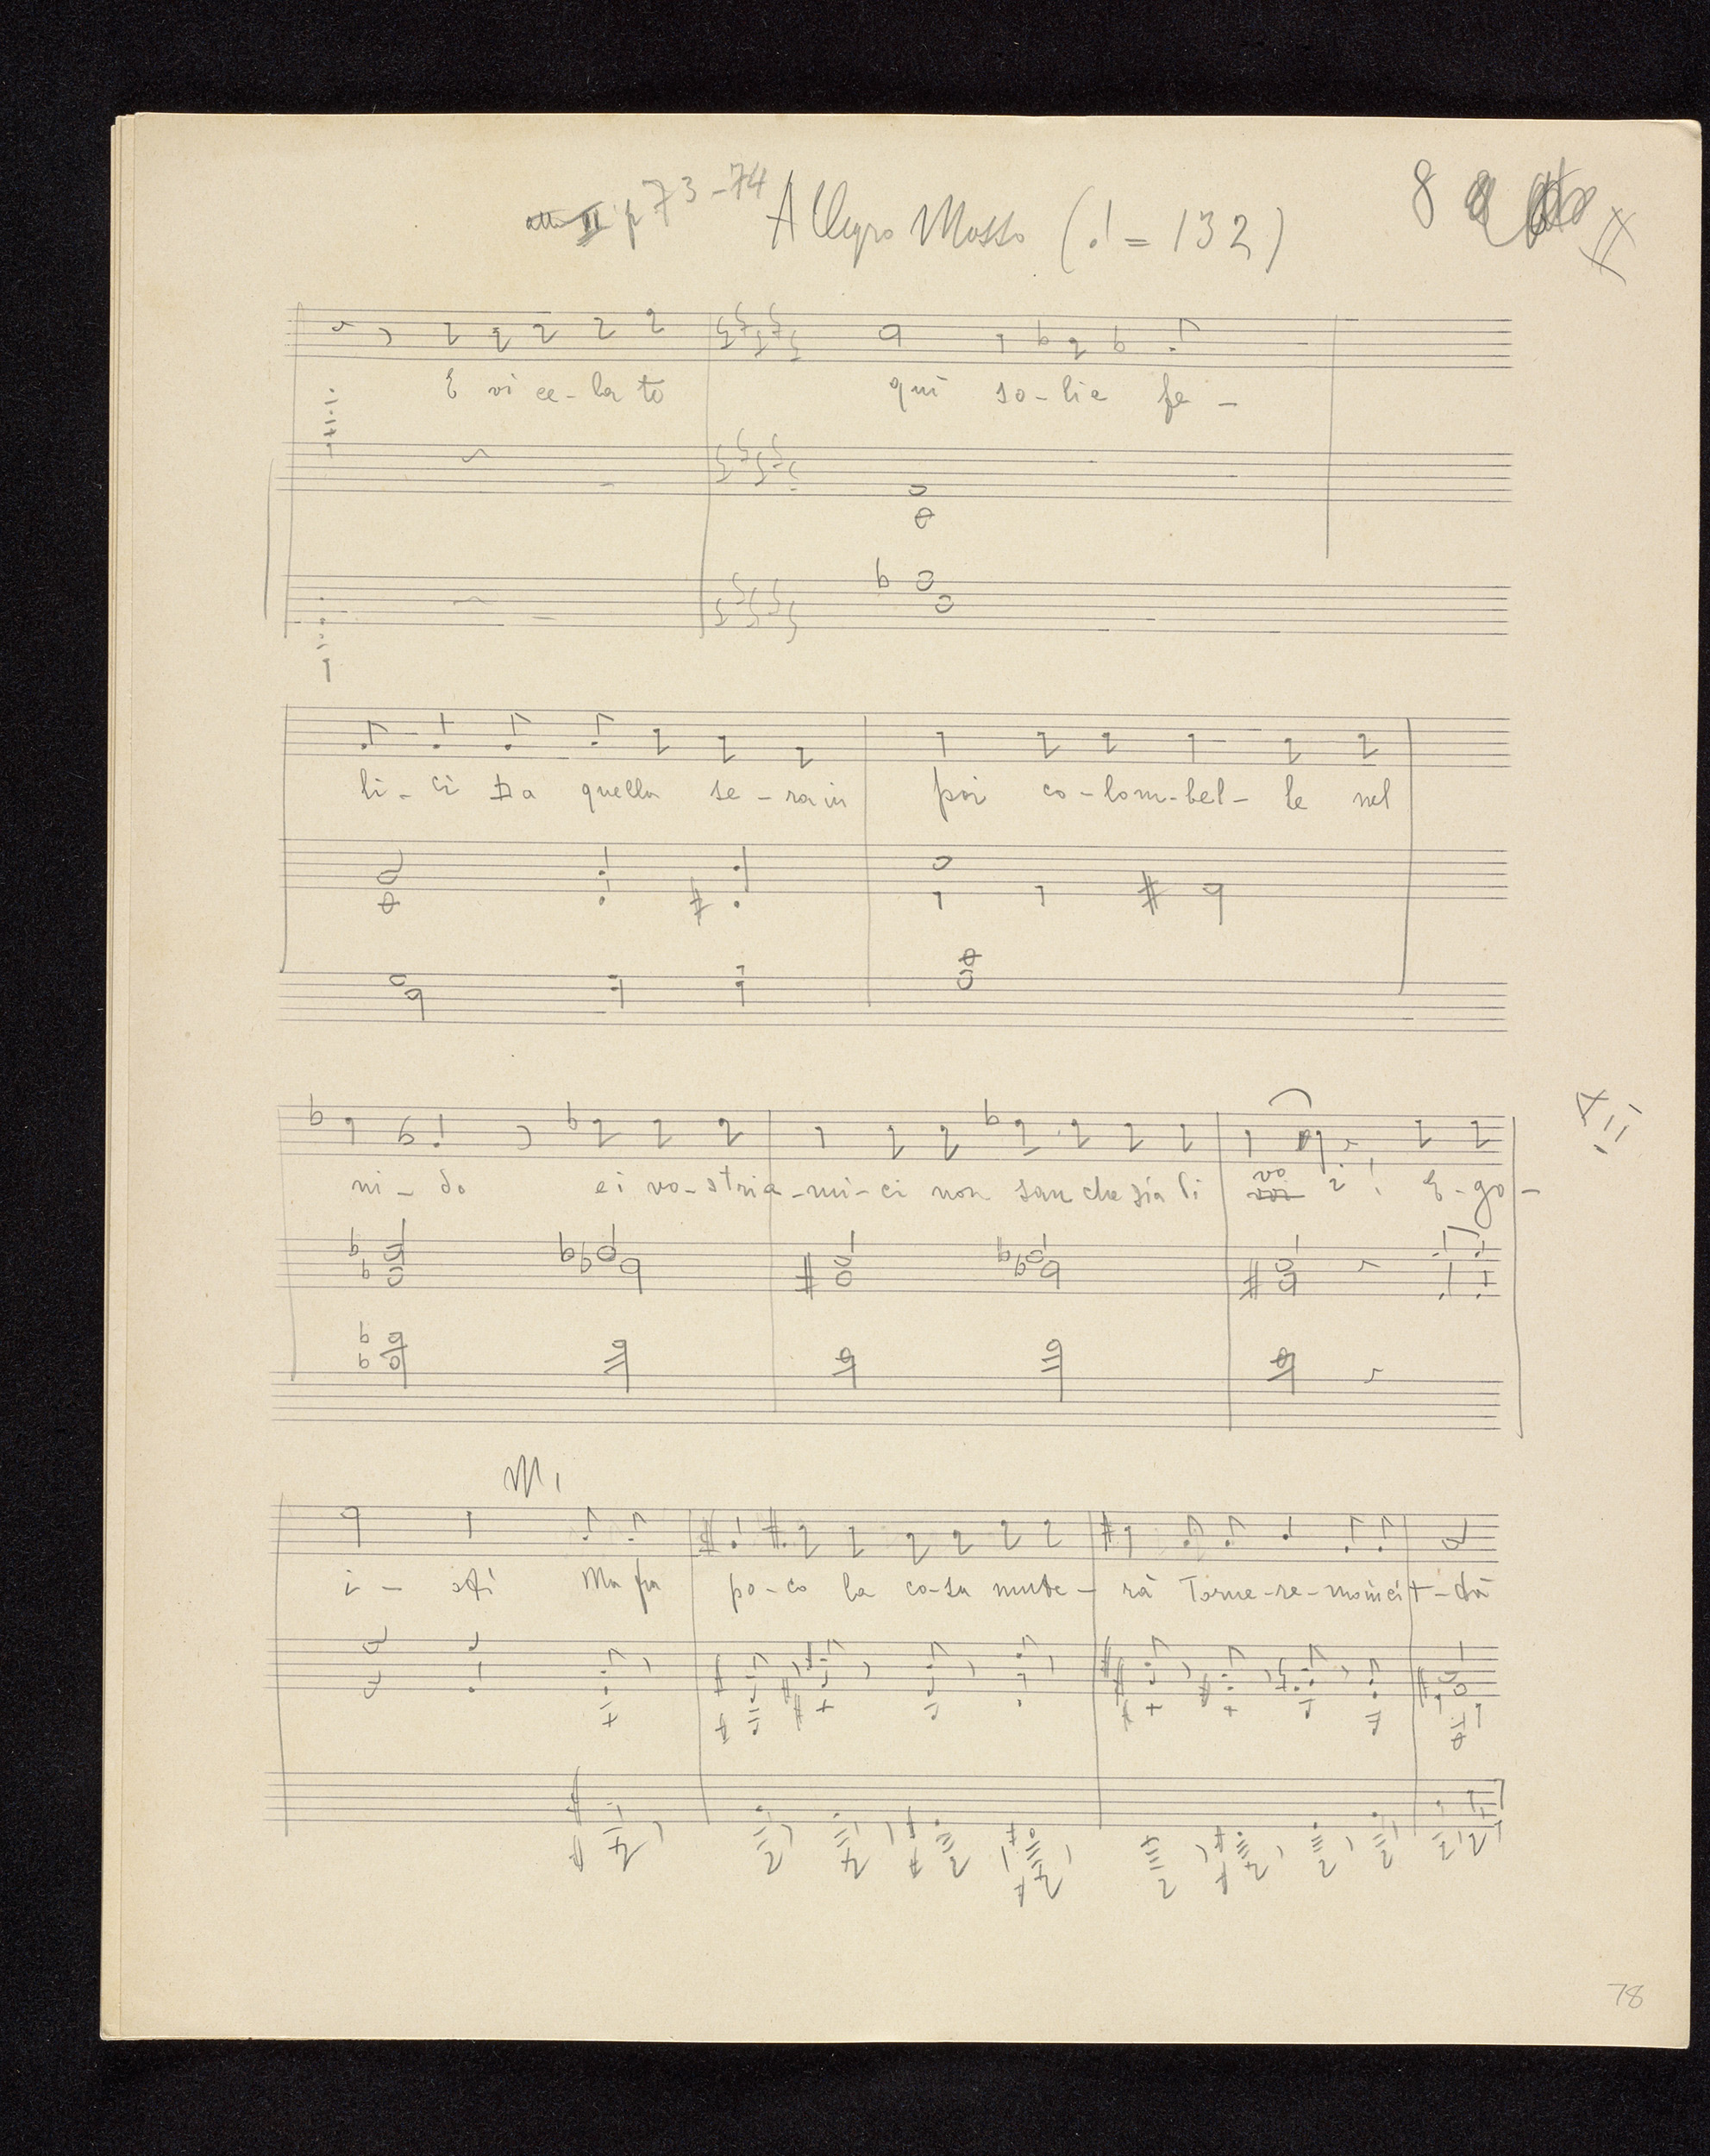 atto II p 73-74 Allegro Mosso (♩ = 132) 8
E vi ce-la to qui so-lie fe-
li-ci Da quella se-ra in poi co-lom-bel-le nel
ni-do ei vo-stria-mi-ci non san che sia di vo i! E-go-
M.
i-sti Ma fra po-co la co-sa mute-rà Torne-re-moincit-tà
78